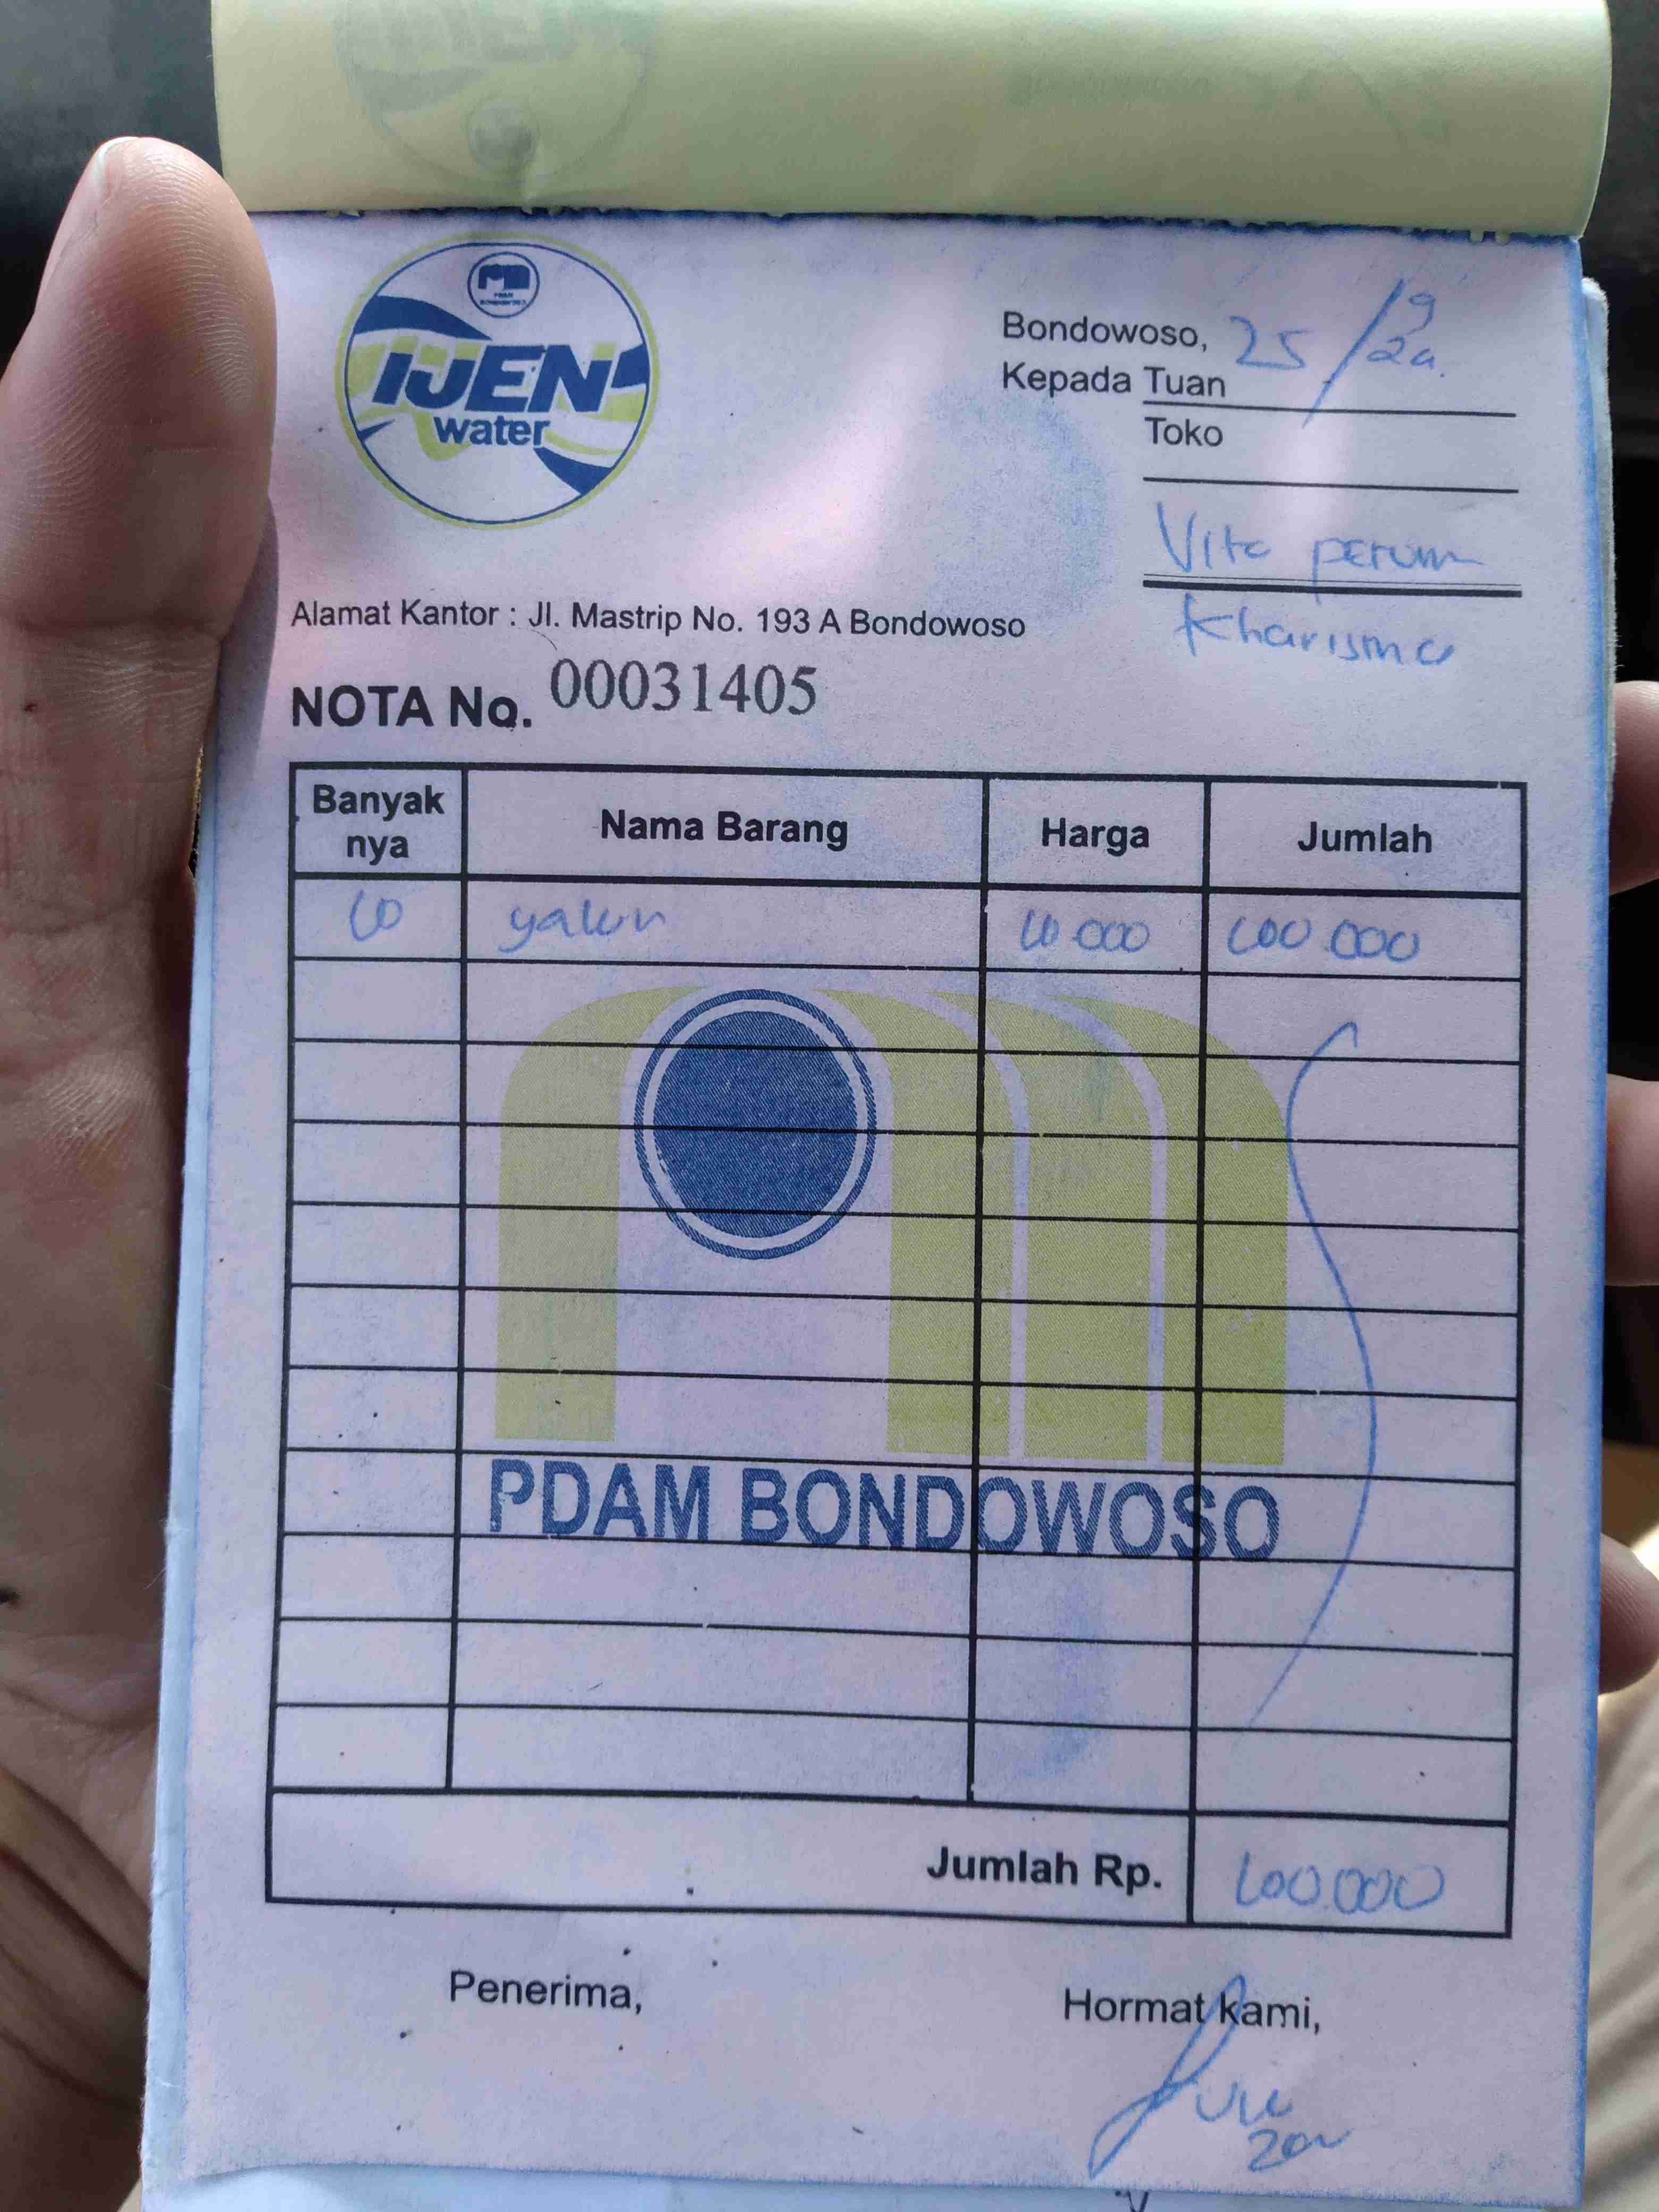 IJEN
water
Bondowoso, 25/9
Kepada Tuan
Toko
Vita perum
Kharisma
Alamat Kantor : Jl. Mastrip No. 193 A Bondowoso
NOTA No. 00031405
Banyak nya Nama Barang Harga Jumlah
10 galon 10.000 100.000
PDAM BONDOWOSO
Jumlah Rp. 100.000
Penerima, Hormat kami,